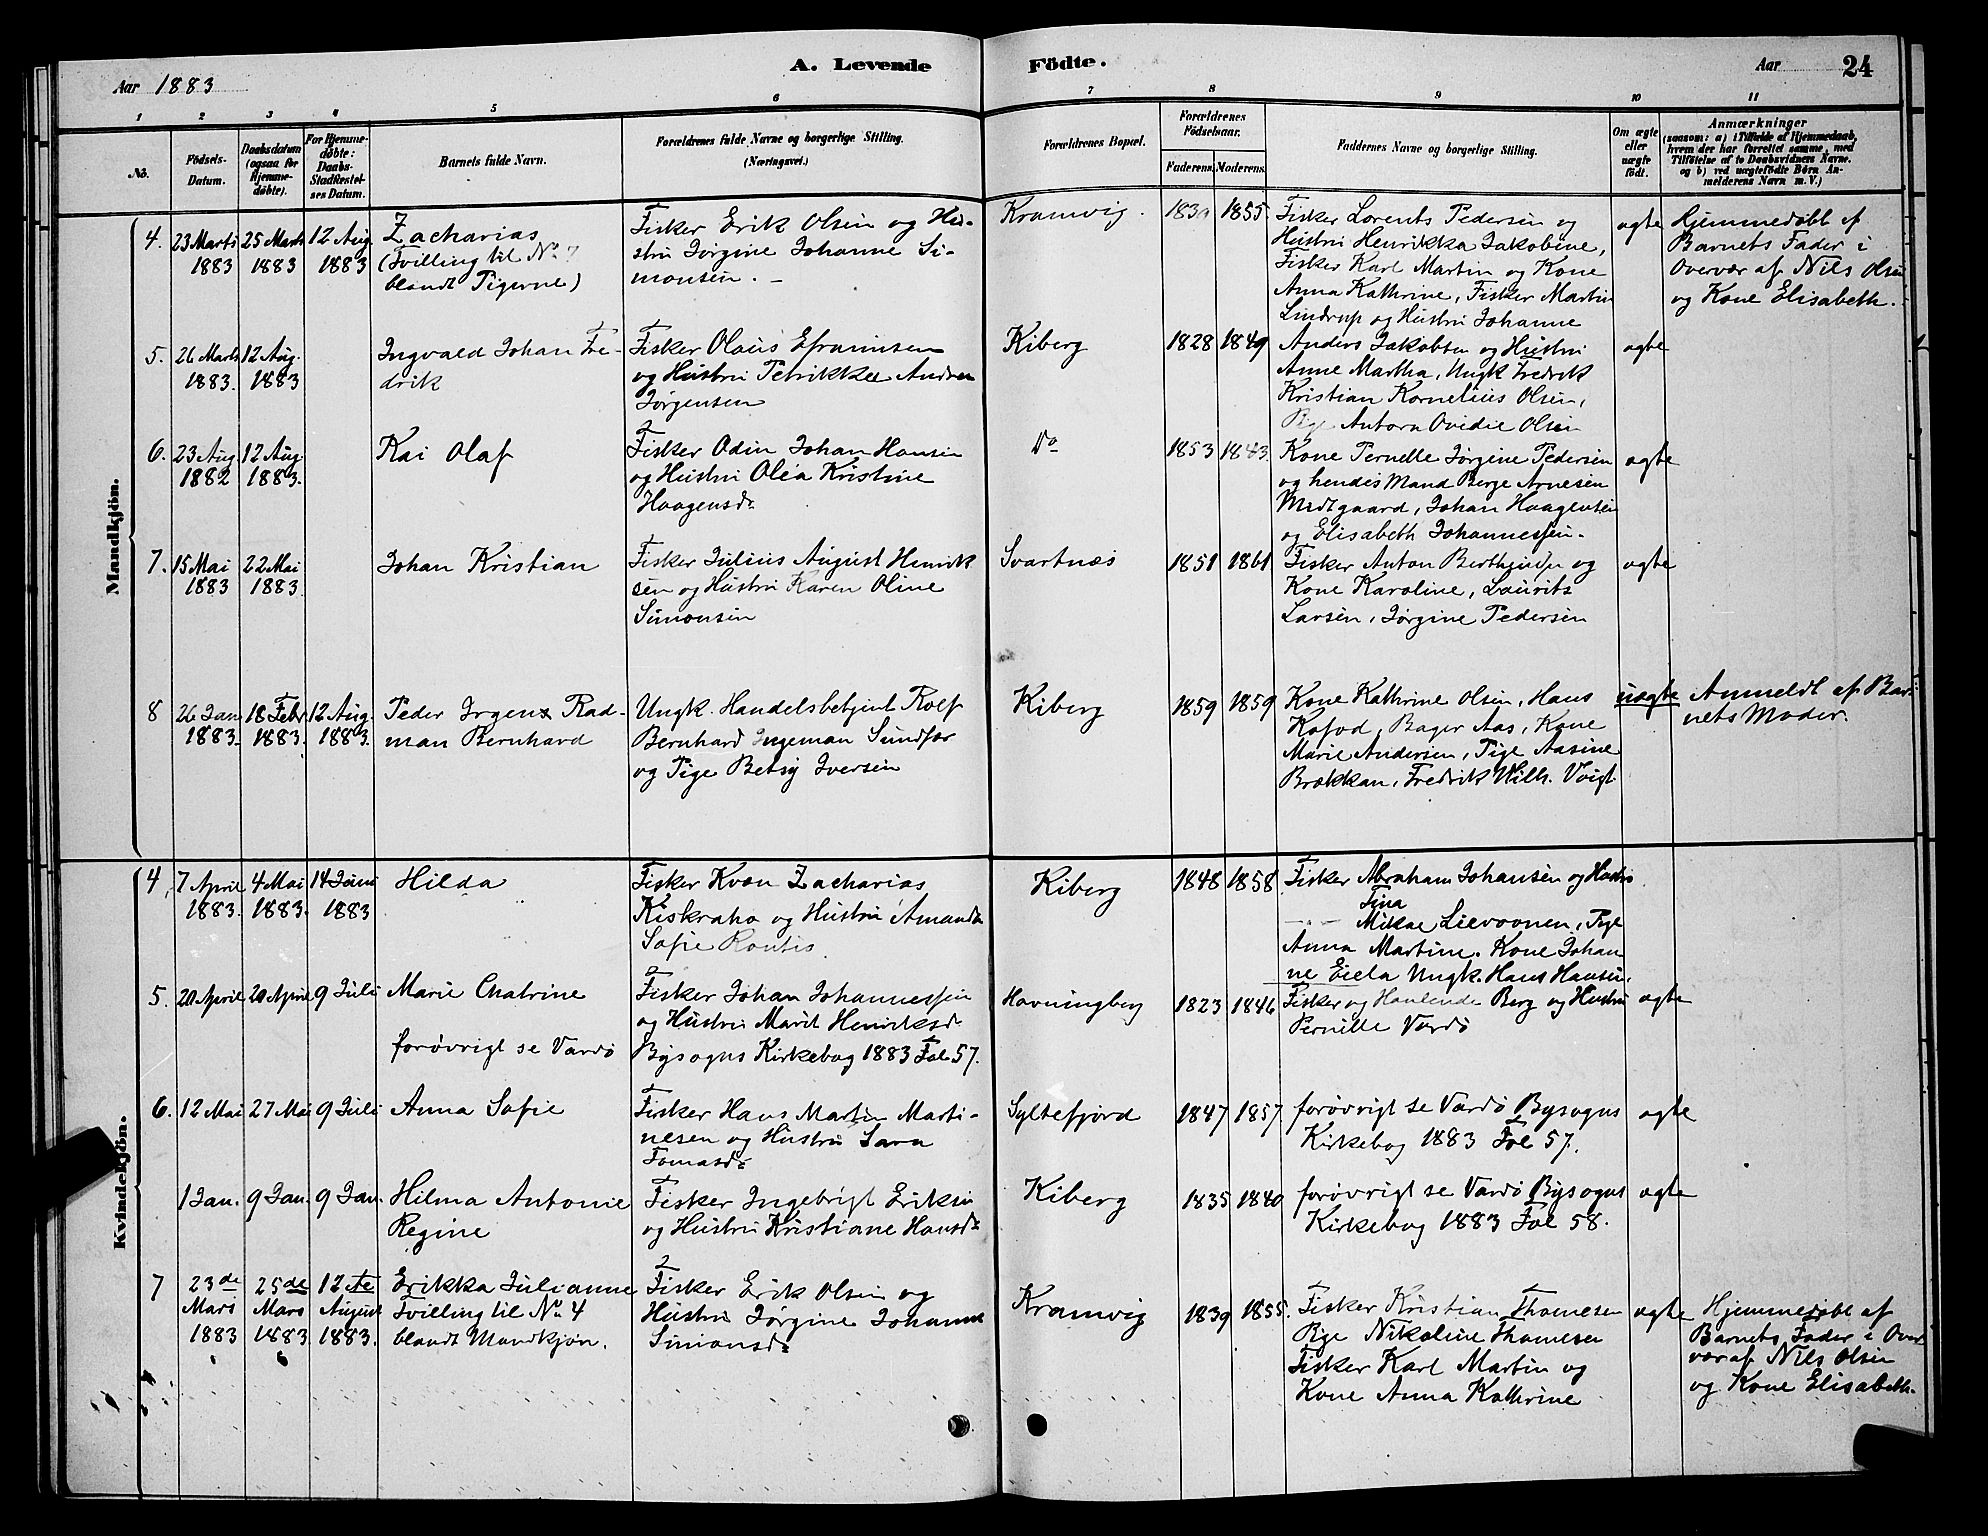 Aar 1883
A. Levende
Födte.
Aar
24
1 2 3 4 5 6 7 8 9 10 11
No.
Födsels-
Datum.
Daabsdatum
(ogsaa for
Hjemme-
døbte).
For Hjemme-
døbte:
Daabs-
Stadfæstel-
ses Datum.
Barnets fulde Navn.
Forældrenes fulde Navne og borgerlige Stilling.
(Næringsvei.)
Forældrenes Bopæl.
Forældrenes
Födselsaar.
Faderens. Moderens.
Faddernes Navne og borgerlige Stilling.
Om ægte
eller
uægte
født.
Anmærkninger
(saasom: a) i Tilfælde af Hjemmedaab,
hvem der har forrettet samme, med
Tilföielse af to Daabsvidners Navne.
og b) ved uægtefödte Börn An-
melderens Navn m. V.)
Mandkjön.
4. 23 Marts
1883
25 Marts
1883
12 Aug.
1883
Zacharias
(Tvilling til No 7
blandt Pigerne)
Fisker Erik Olsen og Hu-
stru Jørgine Johanne Si-
monsen. -
Kramvig.
1839 1855.
Fisker Lorents Pedersen og
Hustru Henrikka Jakobine,
Fisker Karl Martin og Kone
Anna Kathrine, Fisker Martin
Lindrup og Hustru Johanne
ægte
Hjemmedøbt af
Barnets Fader i
Overvær af Nils Olsen
og Kone Elisabeth.
5. 26 Marts
1883.
12 Aug.
1883
Ingvald Johan Fre-
drik
Fisker Olaus Efraimsen
og Hustru Petrikke Andrea
Jørgensen
Kiberg
1828 1849
Anders Jakobsen og Hustru
Anne Martha, Ungk Fredrik
Kristian Kornelius Olsen,
Pige Antora Ovidie Olsen
ægte
6. 23 Aug
1882
12 Aug.
1883.
Kai Olaf
Fisker Odin Johan Hansen
og Hustru Olea Kristine
Haagensdr
Do
1853 1843.
Kone Pernelle Jørgine Pedersen
og hendes Mand Berge Arnesen
Midtgaard, Johan Haagensen
og Elisabeth Johannessen.
ægte
7. 15 Mai
1883
22 Mai
1883.
Johan Kristian
Fisker Julius August Henrik
sen og Hustru Karen Oline
Simonsen
Svartnæs
1851 1861
Fisker Anton Berthinsen og
Kone Karoline, Laurits
Larsen, Jørgine Pedersen
ægte
8 26 Jan
1883.
18 Febr
1883.
12 Aug.
1883.
Peder Jrgens Rad-
man Bernhard
Ungk. Handelsbetjent Rolf
Bernhard Ingeman Sundfær
og Pige Betsy Iversen
Kiberg
1859 1859
Kone Kathrine Olsen, Hans
Kofod, Bager Aas, Kone
Marie Andersen, Pige Aasine
Brækkan, Fredrik Wilh. Voigt
uægte
Anmeldt af Bar-
nets Moder.
Kvindekjön.
4, 7 April
1883.
4 Mai
1883.
14 Juni
1883
Hilda
Fisker Kvæn Zacharias
Kiskraho og Hustru Amanda
Sofie Rontis.
Kiberg
1848 1858
Fisker Abraham Johansen og Hustru
Fina
Mikae Lievoonen, Pige
Anna Martine. Kone Johan
ne Eiela Ungk. Hans Hansen.
5. 20 April
20 April
9 Juli
Marie Chatrine
forøvrigt se Vardø
Fisker Johan Johannessen
og Hustru Marit Henriksdr
Bysogns Kirkebog 1883 Fol 57.
Havningberg
1823 1846
Fisker og Handlende Berg og Hustru
Pernille Vardø
ægte
6. 12 Mai
27 Mai
9 Juli
Anna Sofie
Fisker Hans Martin Marti-
nesen og Hustru Sara
Tomasdr
Syltefjord
1847 1857
forøvrigt se Vardø Bysogns
Kirkebog 1883 Fol 57.
ægte
1 Jan.
9 Jan.
9 Jan.
Hilma Antonie
Regine
Fisker Ingebrigt Eriksen
og Hustru Kristiane Hansdr
Kiberg
1835 1840
forøvrigt se Vardø Bysogns
Kirkebog 1883 Fol 58.
ægte
7 23de
Mars
1883
25de
Mars
1883.
12te
August
1883.
Erikka Julianne
Tvilling til No 4
blandt Mandkjøn.
Fisker Erik Olsen og
Hustru Jørgine Johanne
Simonsdr
Kramvig
1839 1855.
Fisker Kristian Thomesen
Pige Nikoline Thomesen
Fisker Karl Martin og
Kone Anna Kathrine
ægte
Hjemmedøbt af
Barnets Fader i Over
vær af Nils Olsen
og Kone Elisabeth.